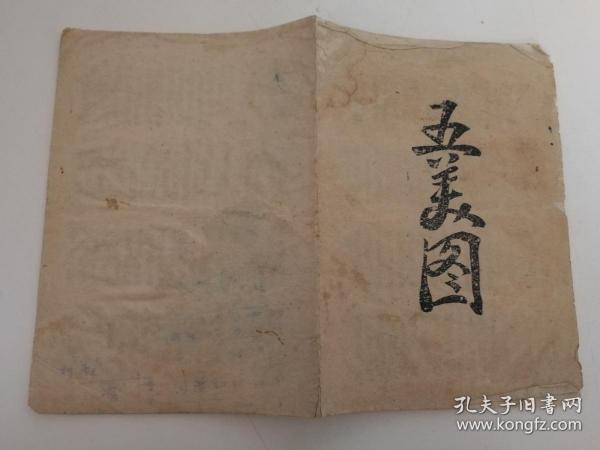 五美图
孔夫子旧書网
www.kongfz.com